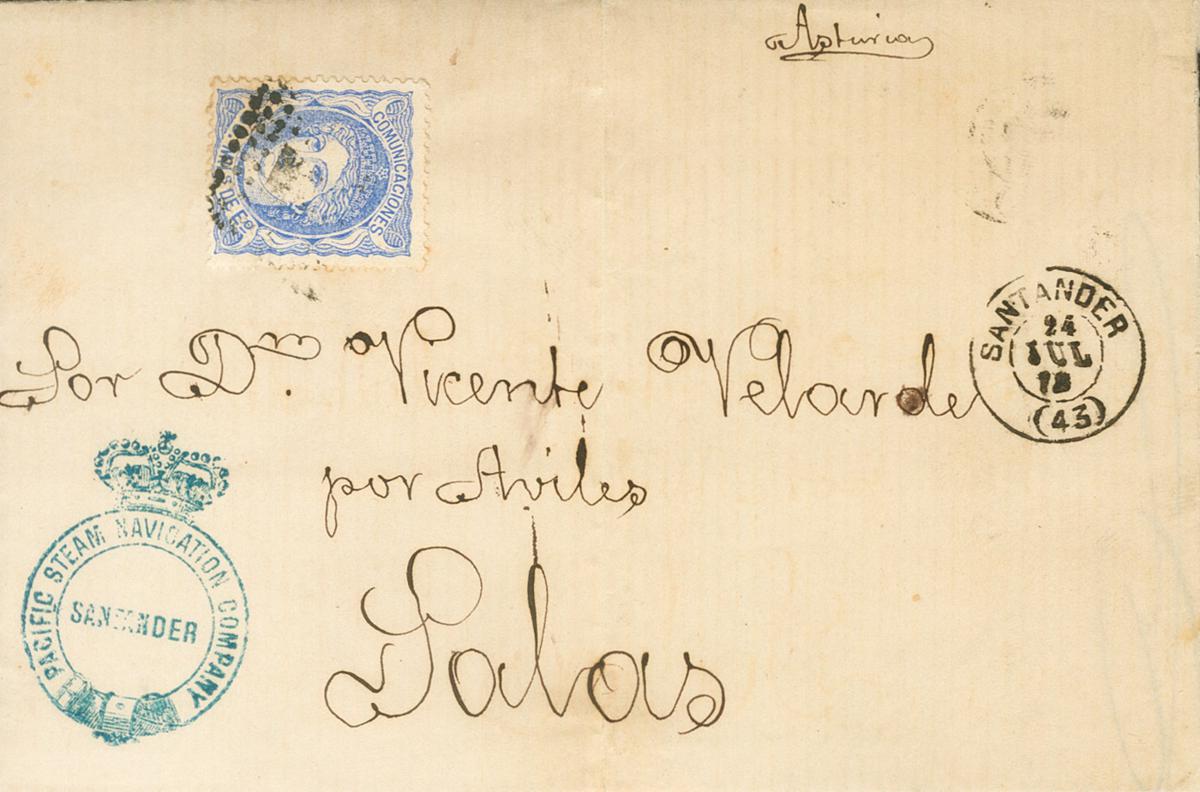 Asturias
COMUNICACIONES
Ms DE Eo.
Sor Dn. Vicente Velarde
SANTANDER
24
JUL
(43)
por Aviles
Salas
PACIFIC STEAM NAVIGATION COMPANY
SANTANDER